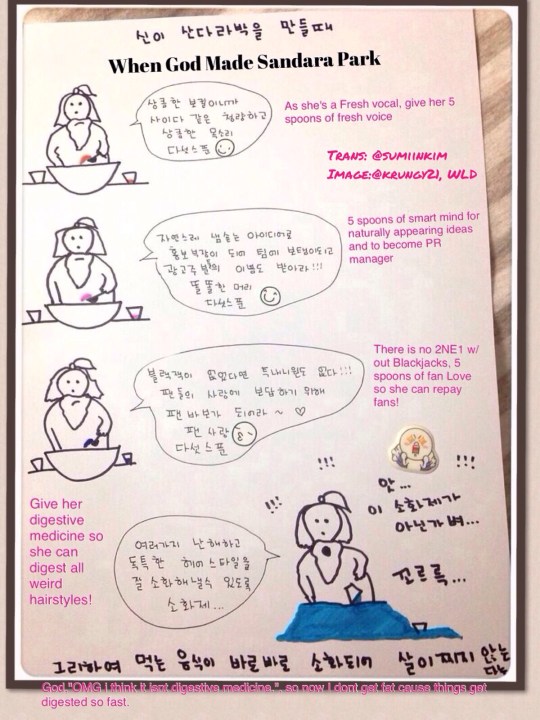 신이 산다라박을 만들때
When God Made Sandara Park
상큼한 보컬이니까
사이다 같은 청량하고
상큼한 목소리
다섯스푼
As she's a Fresh vocal, give her 5
spoons of fresh voice
Trans: @sumiinkim
Image:@krungy21, WLD
자연스레 샘솟는 아이디어로
홍보부장이 되어 팀에 보탬이되고
광고주분들의 이쁨도 받아라!!!
똘똘한 머리
다섯스푼
5 spoons of smart mind for
naturally appearing ideas
and to become PR
manager
블랙잭이 없었다면 투내니원도 없다!!!
팬들의 사랑에 보답하기 위해
팬바보가 되어라~ ♡
팬사랑
다섯스푼
There is no 2NE1 w/
out Blackjacks, 5
spoons of fan Love
so she can repay
fans!
!!!
!!!
!!!
앗...
이 소화제가
아닌가벼...
꼬르륵...
Give her
digestive
medicine so
she can
digest all
weird
hairstyles!
여러가지 난해하고
독특한 헤어스타일을
잘 소화해낼수 있도록
소화제...
그리하여 먹는 음식이 바로바로 소화되어 살이찌지 않는
다는
God "OMG I think it isnt digestive medicine."..so now I dont get fat cause things get
digested so fast.